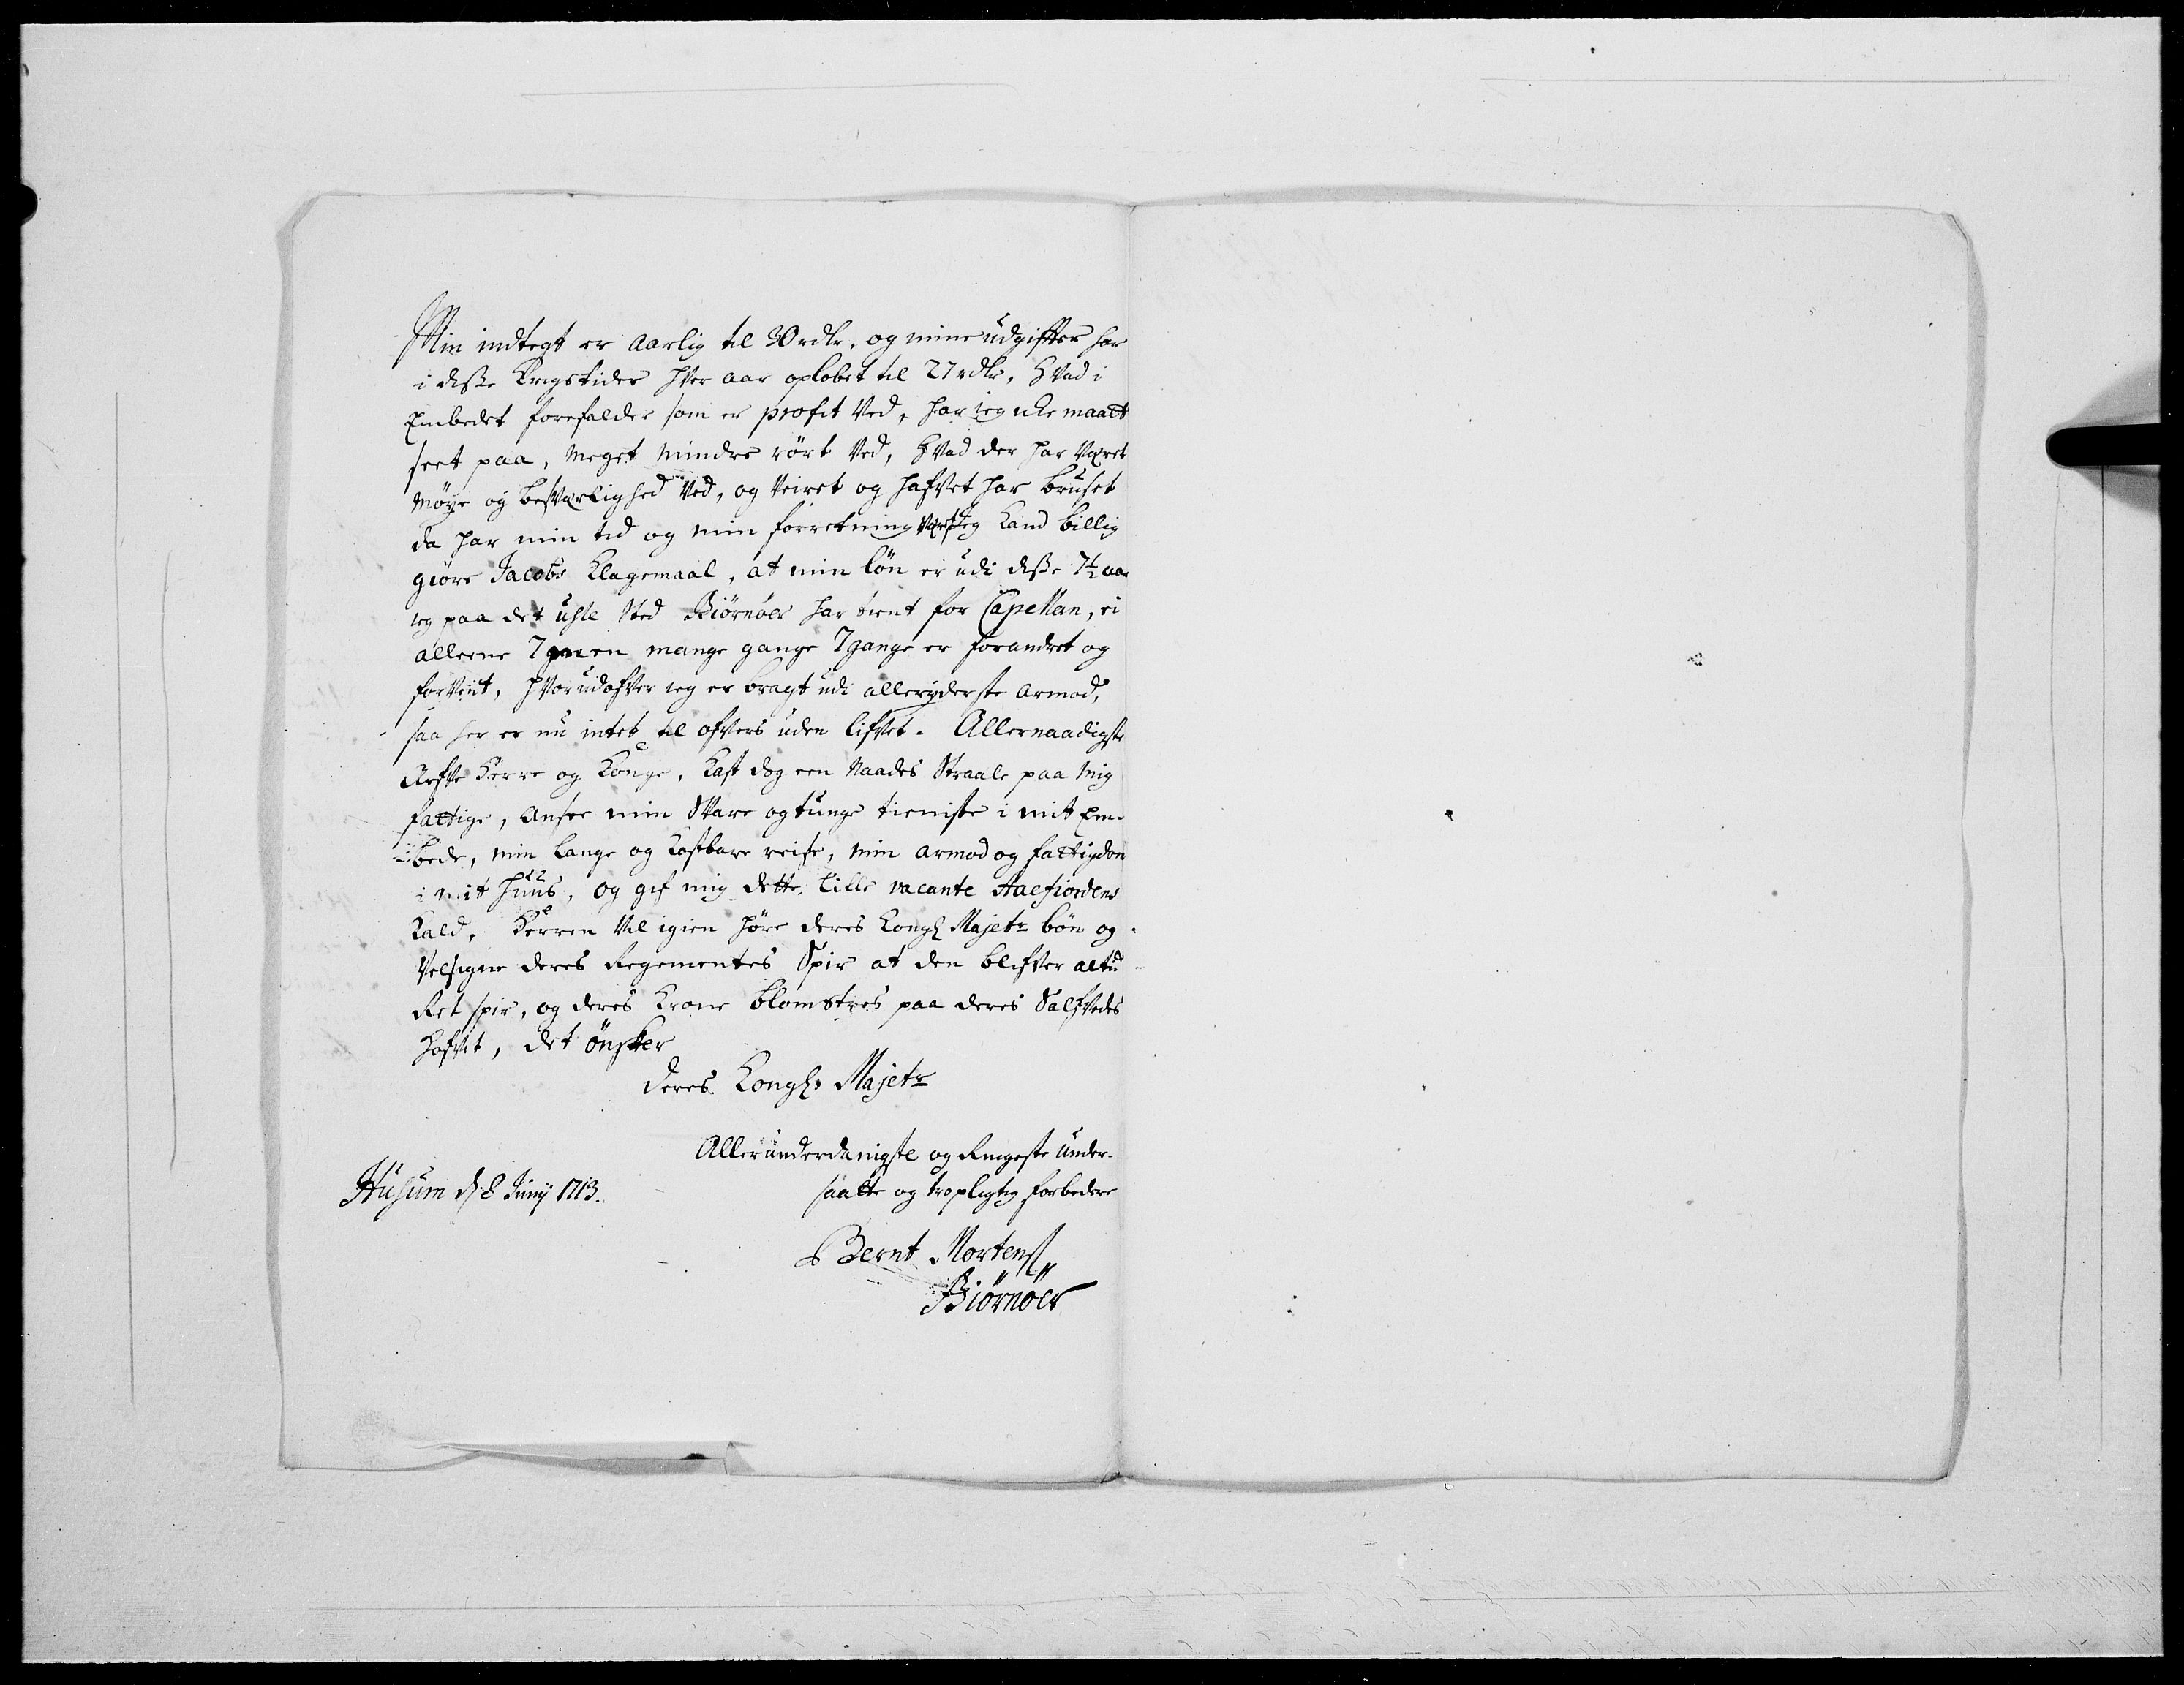 Min indtegt er aarlig til 30 rdlr. og mine udgifter har
i disse Krigstider hver aar opløbet til 27 rdlr. Hvad i
Embedet forefalder som er profit ved, har ieg icke maatt
seet paa, meget mindre rört ved, Hvad der har været
möye og besværlighed ved, og Veiret og hafvet har bruset
da har min tid og min forretning været Jeg Kand billig
giöre Jacobs Klagemaal, at min lön er udi disse 7½ aar
ieg paa det usle sted Biörnöer har tient for Capellan, ei
alleene 7 men mange gange 7 gange er forandret og
forvent, hvorudofver ieg er bragt udi alleryderste armod,
saa her er nu intet til ofvers uden lifvet. Allernaadigste
Arfve Herre og Konge, Kast dog een Naades Straale paa mig
fattige, Ansee min Svare og tunge tieniste i mit Em-
bede, min lange og Kostbare reise, min armod og fattigdom
i mit huus, og gif mig dette lille vacante Aaefiordens
Kald. Herren vil igien höre deres Kongl Majets bön og
Velsigne deres Regementes Spir at den blifver altid
Ret spir, og deres Krone blomstres paa deres Salfvedes
Hofvet, det önsker
Deres Kongl. Majets
Allerunderdanigste og Ringeste under-
saatte og tropligtig forbedere
Husum d. 8 Junij 1713.
Bernt Mortens
Biörnöer